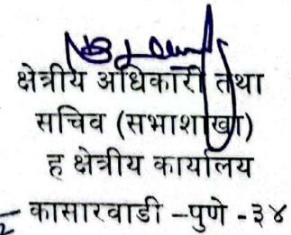 क्षेत्रीय अधिकारी तथा
सचिव (सभाशाखा)
ह क्षेत्रीय कार्यालय
कासारवाडी –पुणे -३४